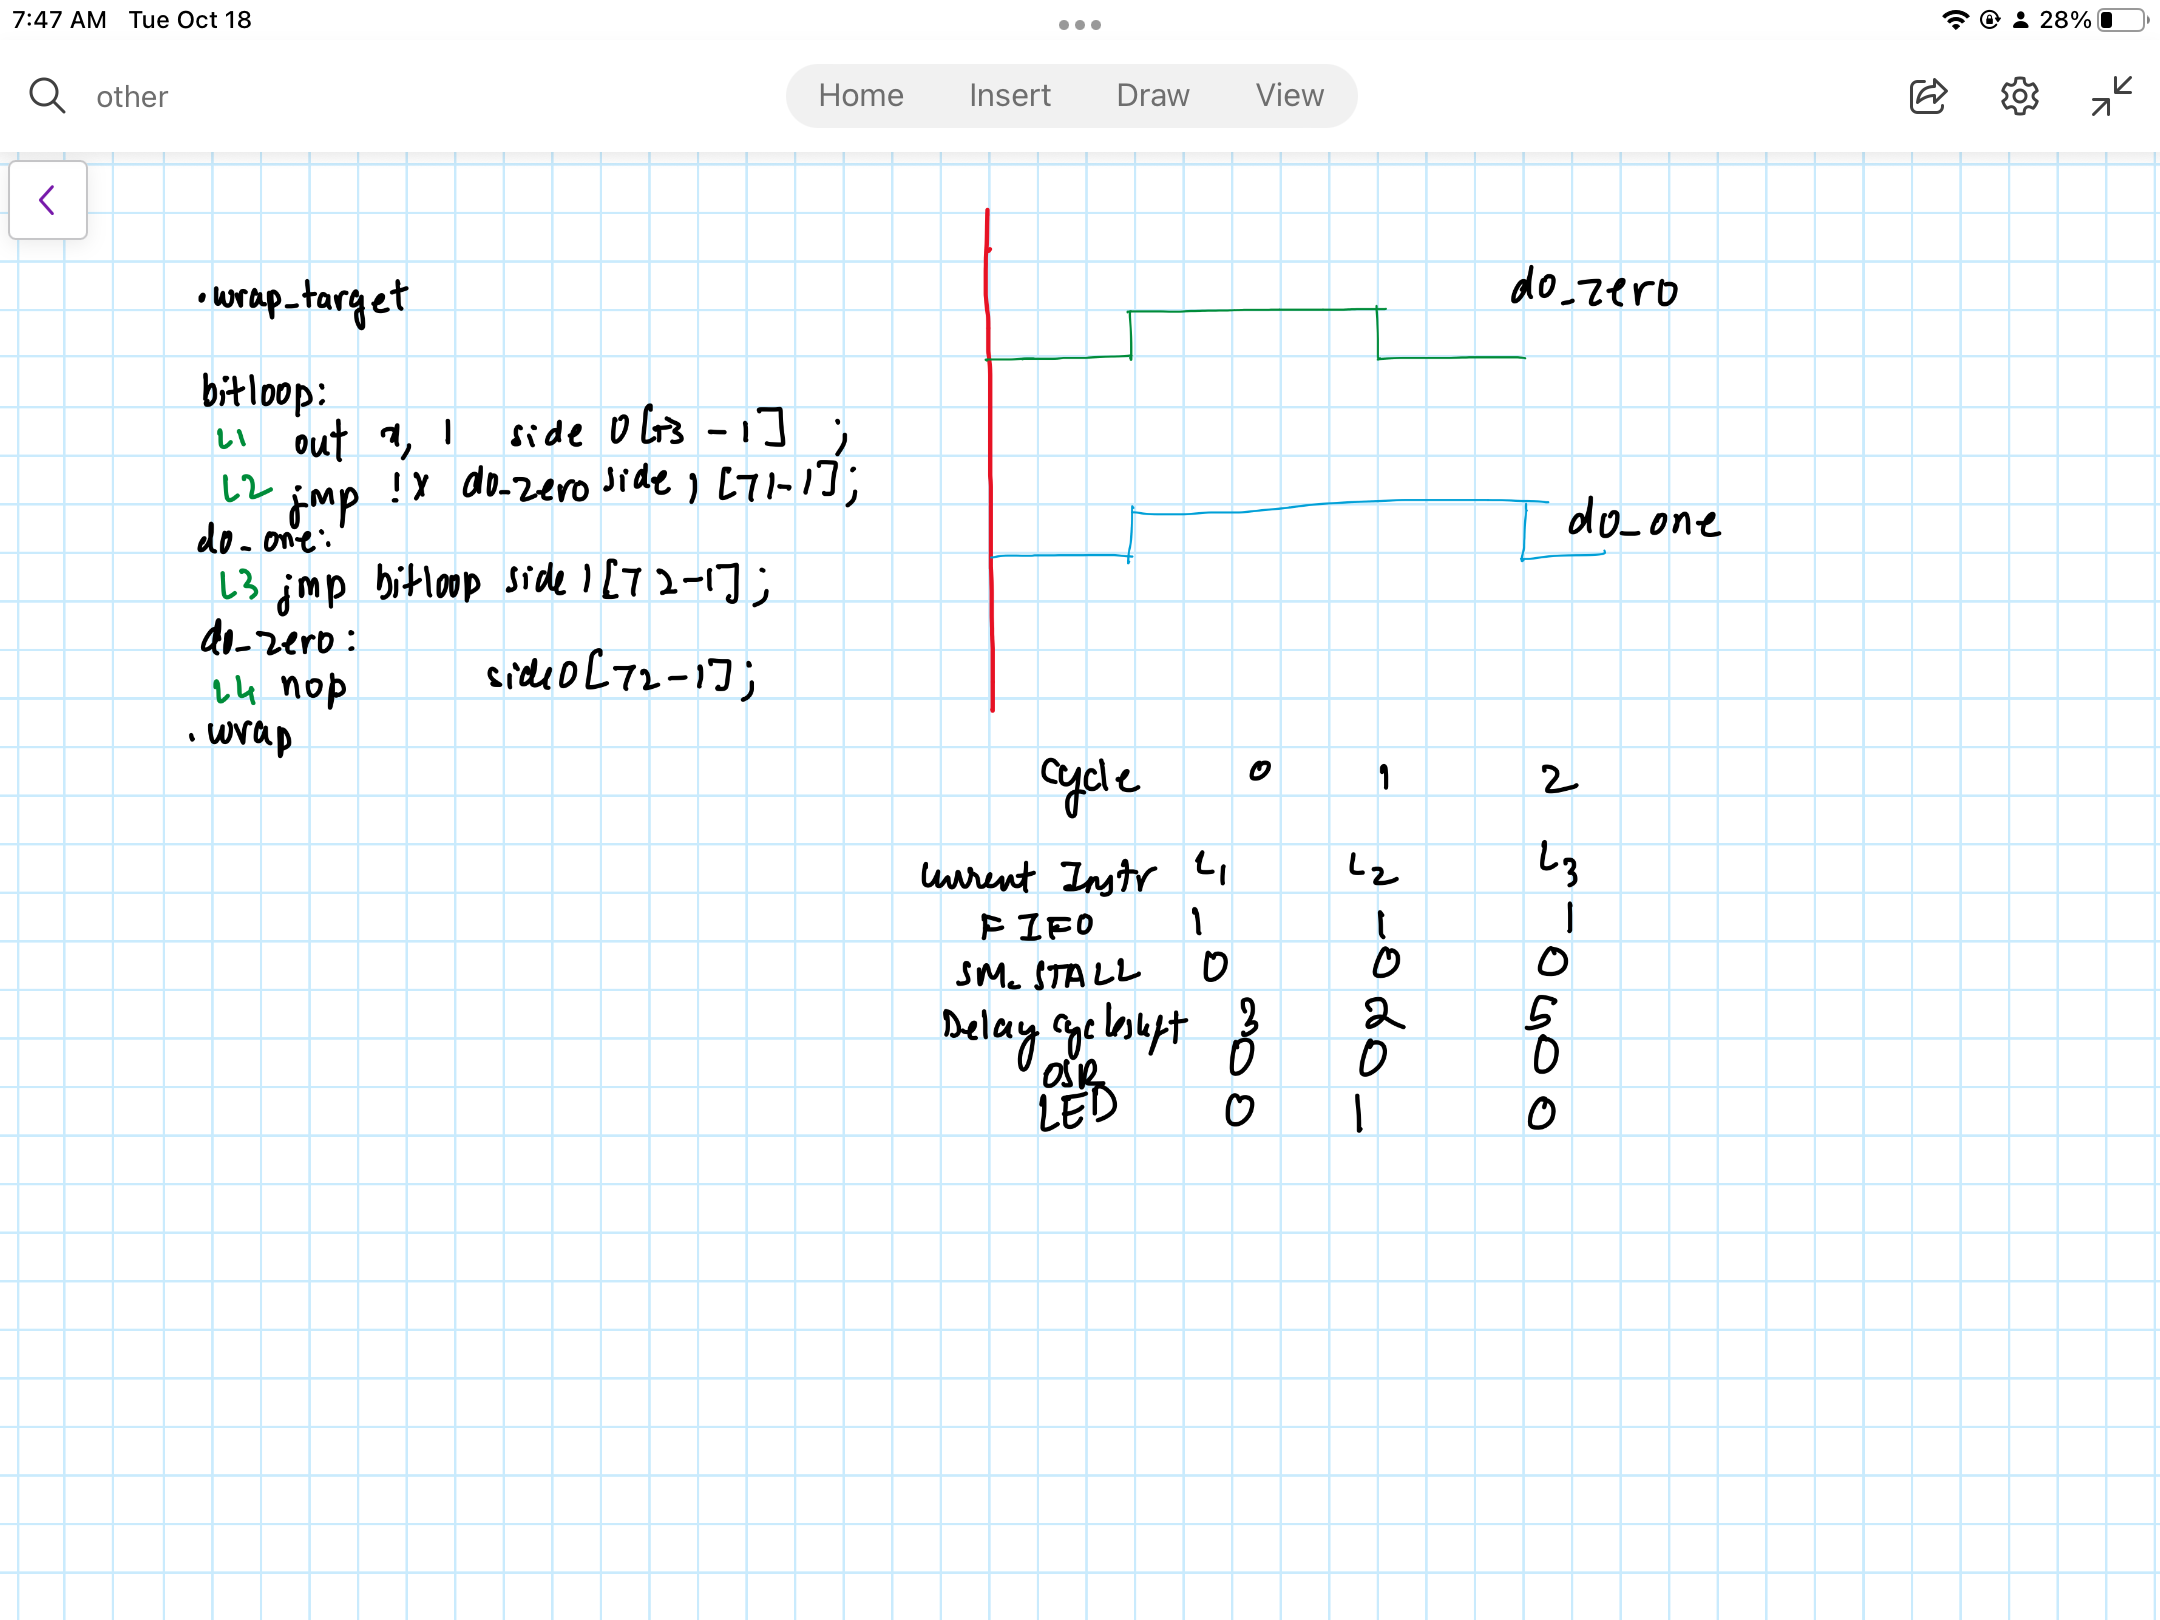 7:47 AM Tue Oct 18
28%
other
Home Insert Draw View
.wrap_target
bitloop:
L1 out x, 1 side 0 [T3 - 1] ;
L2 jmp !x do_zero side 1 [T1-1];
do_one:
L3 jmp bitloop side 1 [T2-1];
do_zero:
L4 nop side 0 [T2-1];
.wrap
do_zero
do_one
Cycle 0 1 2
Current Instr L1 L2 L3
FIFO 1 1 1
SM_STALL 0 0 0
Delay cycles 3 2 5
OSR 0 0 0
LED 0 1 0